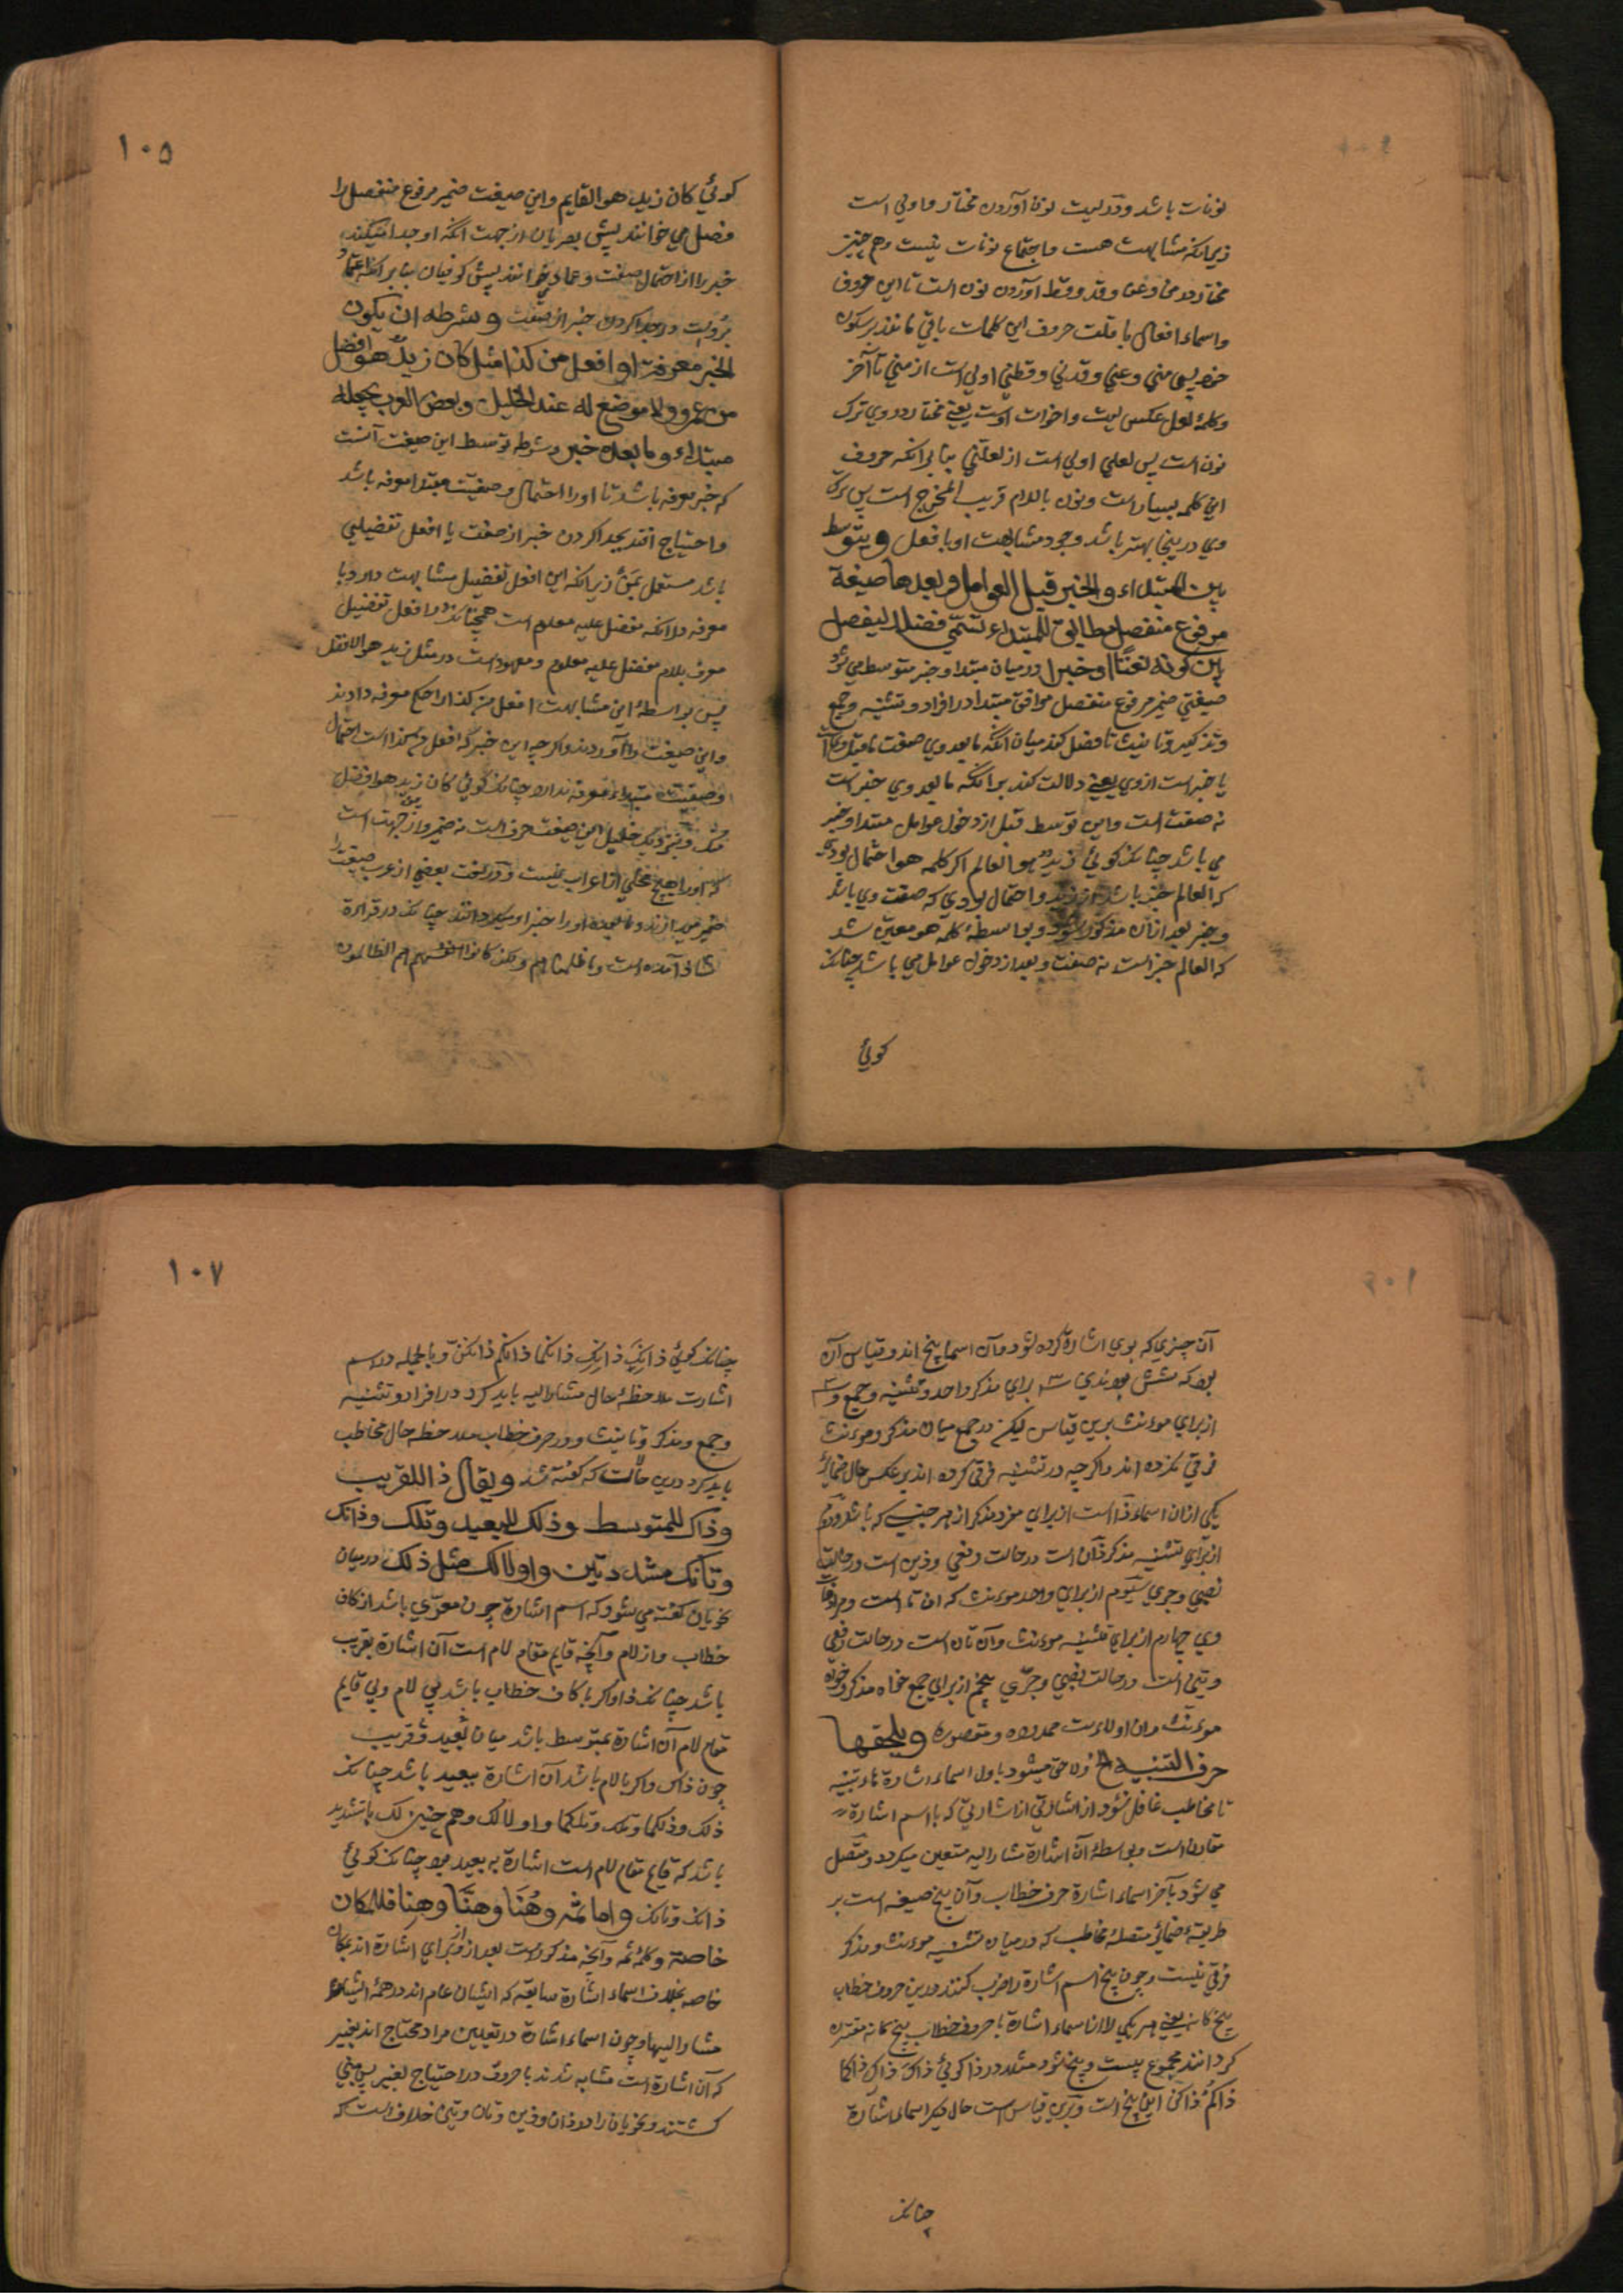 نونات باشد و در لیت نون آوردن مختار و اولی است
زیرا که مشابهت هست و اجتماع نونات نیست و هم چنین
مختار در من و عن و قد و قط آوردن نون است تا این حروف
و اسماء افعال با قلت حروف این کلمات باقی مانند بر سکون
پس منی و عنی و قدنی و قطنی اولی است از منی تا آخر
و کلمهٔ لعل عکس لیت و اخوات اوست یعنی مختار در وی ترک
نون است پس لعلی اولی است از لعلنی بنا بر آنکه حروف
این کلمه بسیار است و نون با لام قریب المخرج است پس ترک
وی درینجا بهتر باشد وجود مشابهت او با فعل ویتوسط
بین المبتداء والخبر قبل العوامل وبعدها صیغة
مرفوع منفصل مطابق للمبتداء تسمّی فصلا لیفصل
بین کونه نعتًا او خبرا در میان مبتدا و خبر متوسط می شود
صیغتی ضمیر مرفوع منفصل موافق مبتدا در افراد و تثنیه و جمع
و تذکیر و تانیث تا فصل کند میان آنکه ما بعد وی صفت ما قبل وی است
یا خبر است از وی یعنی دلالت کند بر آنکه ما بعد وی خبر است
نه صفت است و این توسط قبل از دخول عوامل مبتدا و خبر
می باشد چنانکه گوئی زید هو العالم اکر کلمه هو احتمال بودی
که العالم خبر باشد از زید و احتمال بودی که صفت وی باشد
و خبر بعد از آن مذکور شود و بواسطهٔ کلمه هو معین شد
که العالم خبر است نه صفت و بعد از دخول عوامل می باشد چنانکه
کوئی
۱۰۵
کوئی کان زید هو القایم و این صیغت ضمیر مرفوع منفصل را
فصل می خوانند پیش بصریان از جهت آنکه او جدا میکند
خبر را از احتمال صفت و عماد می خوانند پیش کوفیان بنا بر آنکه اعتماد
بروست در جدا کردن خبر از صفت وشرطه ان یکون
الخبر معرفة او افعل من کذا مثل کان زیدٌ هو افضل
من عمرو ولا موضع له عند الخلیل وبعض العرب یجعله
مبتداء وما بعده خبر و شرط توسط این صیغت آنست
که خبر معرفه باشد تا او را احتمال وصفیت مبتدا معرفه باشد
و احتیاج افتد بجدا کردن خبر از صفت یا افعل تفضیلی
باشد مستعمل بمن زیرا که این افعل تفضیل مشابهت دارد با
معرفه در آنکه مفضل علیه معلوم است همچنانکه در افعل تفضیل
معرف بلام مفضل علیه معلوم و معهود است در مثل زید هو الافضل
پس بواسطهٔ این مشابهت افعل من کذا را حکم معرفه دادند
و این صیغت را آوردند و اکر چه این خبر که افعل من کذا است احتمال
وصفیت مبتداء معرفه ندارد چنانکه کوئی کان زید هو افضل
منک و نزدیک خلیل این صیغت حرف است نه ضمیر و ازین جهت است
که او را هیچ محلی از اعراب نیست و در لغت بعضی از عرب صیغت را
ضمیر میدارند و ما بعده او را خبر او میکردانند چنانکه در قراءة
شاذ آمده است وما ظلمناهم ولکن کانوا انفسهم هم الظالمون
آن چیزی که بوی اشارة کرده شود و آن اسما پنج اند و قیاس آن
بود که شش بودندی سه برای مذکر واحد و تثنیه و جمع و سه
از برای مونث برین قیاس لیکن در جمع میان مذکر و مونث
فرق نکرده اند و اکر چه در تثنیه فرق کرده اند بر عکس حال ضمائر
یکی از آن اسماء ذا است از برای مفرد مذکر از هر جنسی که باشد دوم
از برای تثنیه مذکر ذان است در حالت رفعی و ذین است در حالت
نصبی و جری سیوم از برای واحد مونث که آن تا است و مرادفات
وی چهارم از برای تثنیه مونث و آن تان است در حالت رفعی
و تین است در حالت نصبی و جرّی پنجم از برای جمع خواه مذکر و خواه
مونث و آن اولاء است ممدوده و مقصوره ویلحقها
حرف التنبیه الخ و لاحق میشود باول اسماء اشارة هاء تنبیه
تا مخاطب غافل نشود از اشارتی که با اسم اشارة
مقارن است و بواسطهٔ آن اشارة مشار الیه متعین میکردد و متصل
می شود بآخر اسماء اشارة حرف خطاب و آن پنج صیغه است بر
طریقهٔ ضمائر متصلهٔ مخاطب که در میان تثنیه مونث و مذکر
فرقی نیست و چون پنج اسم اشارة را ضرب کنند درین حروف خطاب
پنج کانه یعنی هر یکی را از اسماء اشارة با حروف خطاب پنج کانه مقترن
کردانند مجموع بیست و پنج شود مثلا در ذا کوئی ذاکَ ذاکِ ذاکما
ذاکم ذاکن این پنج است و برین قیاس است حال دیکر اسماء اشارة
چنانکه
۱۰۷
چنانکه کوئی ذانکَ ذانکِ ذانکما ذانکم ذانکن و بالجمله در اسم
اشارت ملاحظهٔ حال مشار الیه باید کرد در افراد و تثنیه
و جمع و مذکر و تانیث و در حرف خطاب ملاحظه حال مخاطب
باید کرد درین حالت که کفته شد ویقال ذا للقریب
وذاک للمتوسط وذلک للبعید وتلک وذانک
وتانک مشددتین واولالک مثل ذلک در میان
نحویان کفته می شود که اسم اشارة چون معرّی باشد از کاف
خطاب و از لام و آنچه قایم مقام لام است آن اشارة بقریب
باشد چنانکه ذا و اکر با کاف خطاب باشد بی لام و بی قایم
مقام لام آن اشارة بمتوسط باشد میان بعید و قریب
چون ذاک و اکر با لام باشد آن اشارة ببعید باشد چنانکه
ذلک و ذلکما و تلک و تلکما و اولالک و هم چنین با تشدید
باشد که قایم مقام لام است اشارة به بعید بود چنانکه کوئی
ذانّک و تانّک واما ثمه وهُنَا وهنَّا وهِنا فللمکان
خاصة و کلمهٔ ثمه و آنچه مذکور است بعد از وی از برای اشارة اند بمکان
خاصه بخلاف اسماء اشارة سابقه که ایشان عام اند در همهٔ اشیاء
مشار الیها و چون اسماء اشارة در تعیین مراد محتاج اند بغیر
که آن اشارة است مشابه شدند با حروف در احتیاج بغیر پس مبنی
کشتند و نحویان را در ذان و ذین و تان و تین خلاف است که